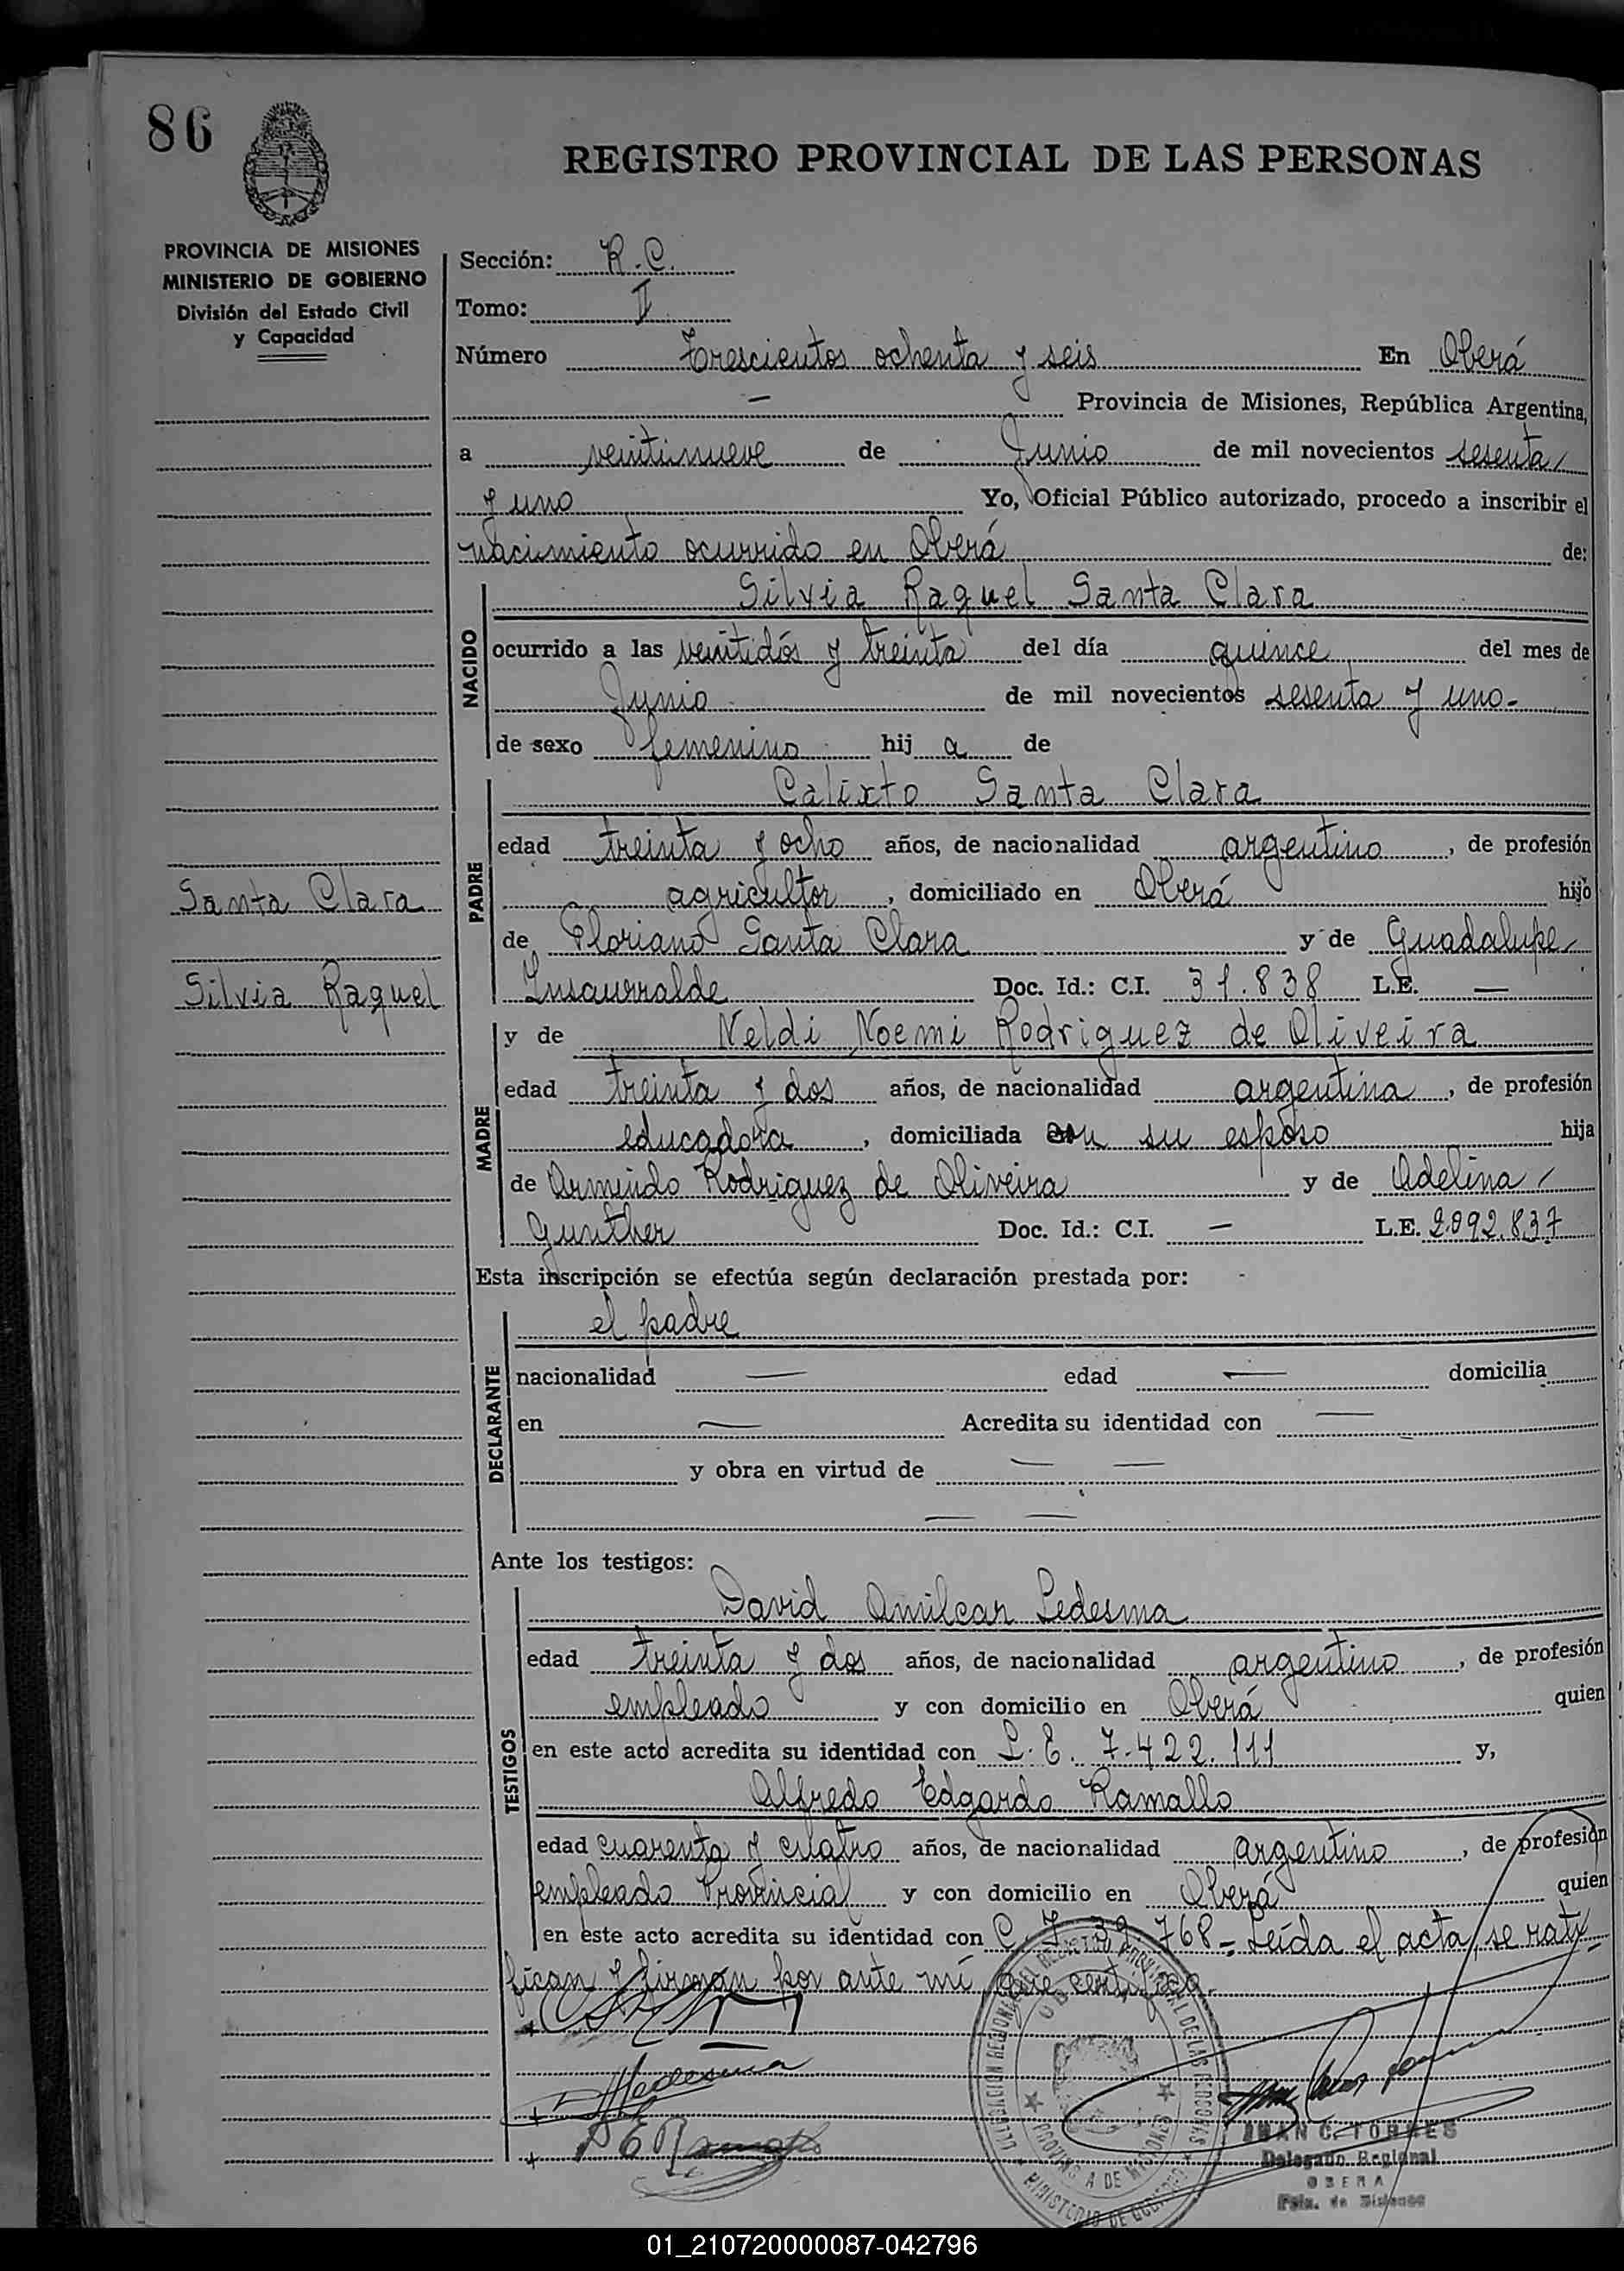 86
REGISTRO PROVINCIAL DE LAS PERSONAS
PROVINCIA DE MISIONES
MINISTERIO DE GOBIERNO
División del Estado Civil
y Capacidad
Sección: R.C.
Tomo: II
Número Trescientos ochenta y seis En Oberá
— Provincia de Misiones, República Argentina,
a veintinueve de Junio de mil novecientos sesenta/
y uno Yo, Oficial Público autorizado, procedo a inscribir el
nacimiento ocurrido en Oberá de:
NACIDO
Silvia Raquel Santa Clara
ocurrido a las veintidós y treinta del día quince del mes de
Junio de mil novecientos sesenta y uno-
de sexo femenino hij a de
PADRE
Calixto Santa Clara
edad treinta y ocho años, de nacionalidad argentino, de profesión
agricultor, domiciliado en Oberá hijo
Santa Clara
de Floriano Santa Clara y de Guadalupe/
Silvia Raquel
Insaurralde Doc. Id.: C.I. 31.838 L.E. —
MADRE
y de Neldi Noemi Rodriguez de Oliveira
edad treinta y dos años, de nacionalidad argentina, de profesión
educadora, domiciliada con su esposo hija
de Armindo Rodriguez de Oliveira y de Adelina/
Gunther Doc. Id.: C.I. — L.E. 2.092.837
Esta inscripción se efectúa según declaración prestada por:
DECLARANTE
el padre
nacionalidad — edad — domicilia
en — Acredita su identidad con —
y obra en virtud de — —
— —
Ante los testigos:
TESTIGOS
David Amilcar Ledesma
edad treinta y dos años, de nacionalidad argentino, de profesión
empleado y con domicilio en Oberá quien
en este acto acredita su identidad con L.E. 7.422.111 y,
Alfredo Edgardo Ramallo
edad cuarenta y cuatro años, de nacionalidad argentino, de profesión
empleado Provincial y con domicilio en Oberá quien
en este acto acredita su identidad con C.I. 39.768-Leída el acta, se rati-
fican y firman por ante mí que certifico.
Ledesma
A E Ramallo
DELEGACION REGIONAL DEL REGISTRO PROVINCIAL DE LAS PERSONAS
OBERA
PROVINCIA DE MISIONES
MINISTERIO DE GOBIERNO
JUAN C. TORRES
Delegado Regional
OBERA
Pcia. de Misiones
01_210720000087-042796